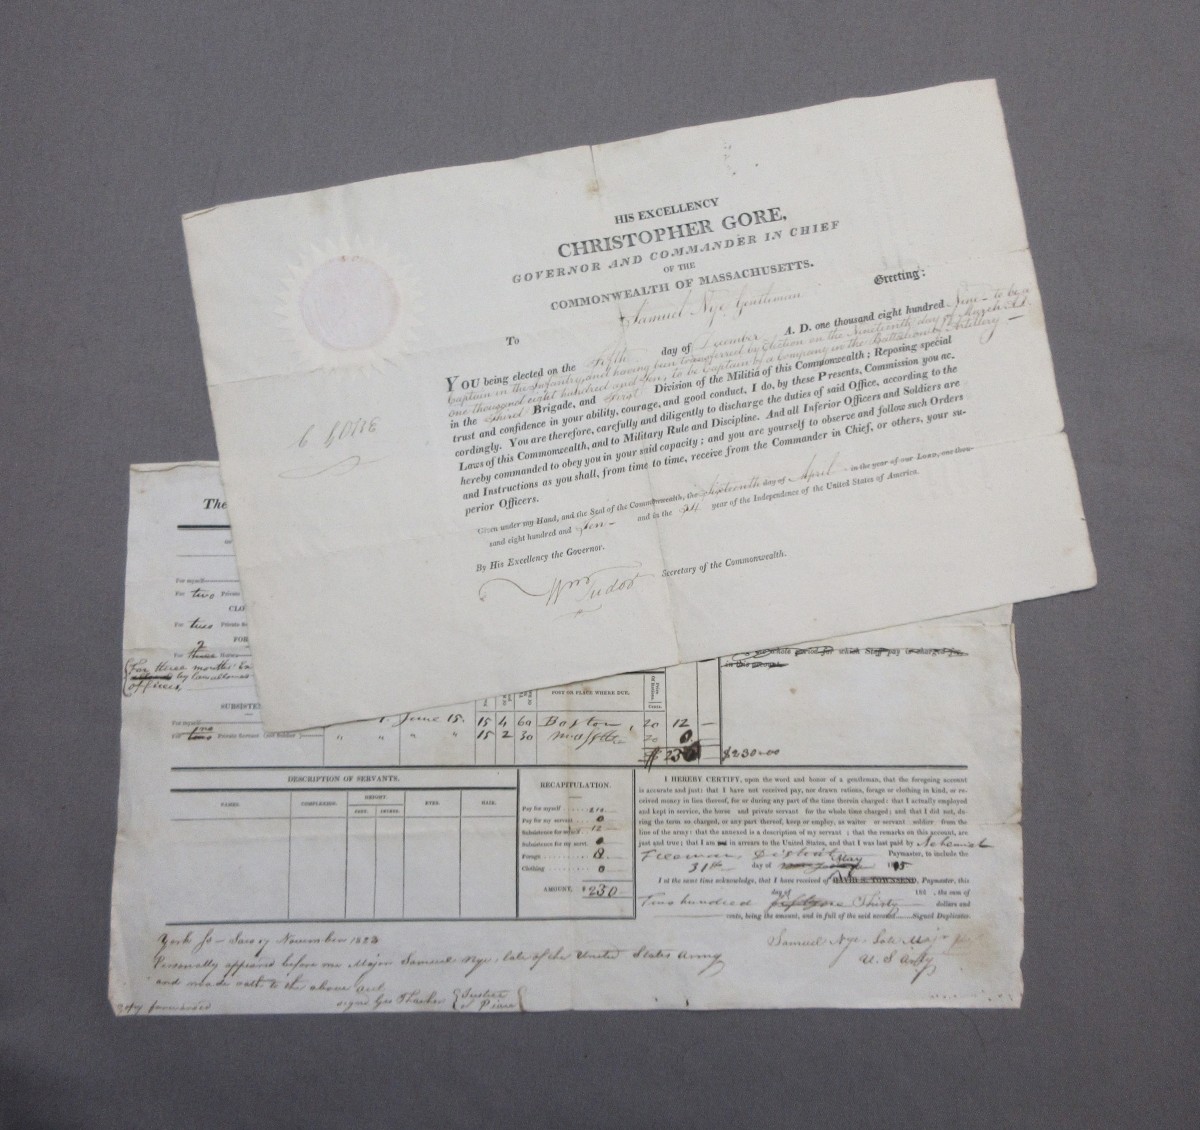 HIS EXCELLENCY
CHRISTOPHER GORE,
GOVERNOR AND COMMANDER IN CHIEF
OF THE
COMMONWEALTH OF MASSACHUSETTS.
To Samuel Nye Gentleman Greeting:
YOU being elected on the day of December A. D. one thousand eight hundred Nine to be a
Captain in the Infantry, and having been transferred by Election on the Nineteenth day of March AD
one thousand eight hundred and ten, to be Captain of a Company in the Battalion of Artillery
in the third Brigade, and first Division of the Militia of this Commonwealth; Reposing special
trust and confidence in your ability, courage, and good conduct, I do, by these Presents, Commission you ac-
cordingly. You are therefore, carefully and diligently to discharge the duties of said Office, according to the
Laws of this Commonwealth, and to Military Rule and Discipline. And all Inferior Officers and Soldiers are
hereby commanded to obey you in your said capacity; and you are yourself to observe and follow such Orders
and Instructions as you shall, from time to time, receive from the Commander in Chief, or others, your su-
perior Officers.
Given under my Hand, and the Seal of the Commonwealth, the sixteenth day of April in the year of our LORD, one thou-
sand eight hundred and Ten and in the 34 year of the Independence of the United States of America.
By His Excellency the Governor.
Wm Tudor Secretary of the Commonwealth.
The
For myself
For two Private
CLO
For two Private
FOR
For three
For three months
by
officers,
SUBSISTE
For myself 1. June 15. 15 4 60 Boston 20 12
For two Private Servant 15 2 30 Masstts 20 0
POST OR PLACE WHERE DUE.
$ 230 $230.00
whole period for which Staff pay is charged
DESCRIPTION OF SERVANTS.
NAMES. COMPLEXION. HEIGHT. EYES. HAIR.
FEET. INCHES.
RECAPITULATION.
Pay for myself 210
Pay for my servant 0
Subsistence for myself 12
Subsistence for my servt. 0
Forage 8
Clothing 0
AMOUNT, $ 230
I HEREBY CERTIFY, upon the word and honor of a gentleman, that the foregoing account
is accurate and just: that I have not received pay, nor drawn rations, forage or clothing in kind, or re-
ceived money in lieu thereof, for or during any part of the time therein charged: that I actually employed
and kept in service, the horse and private servant for the whole time charged; and that I did not, du-
ring the term so charged, or any part thereof, keep or employ, as waiter or servant soldier from the
line of the army: that the annexed is a description of my servant; that the remarks on this account, are
just and true; that I am in arrears to the United States, and that I was last paid by Nehemiah
Freeman, District Paymaster, to include the
31st day of May 15
I at the same time acknowledge, that I have received of DAVID S. TOWNSEND, Paymaster, this
day of 182 , the sum of
Two hundred Thirty dollars and
cents, being the amount, and in full of the said account. Signed Duplicates.
Samuel Nye, late Major
U. S. Arty
York ss Saco 17 November 1823
Personally appeared before me Major Samuel Nye, late of the United States Army
and made oath to the above acct
signd Geo Thacher Justice
Peace
Copy forwarded